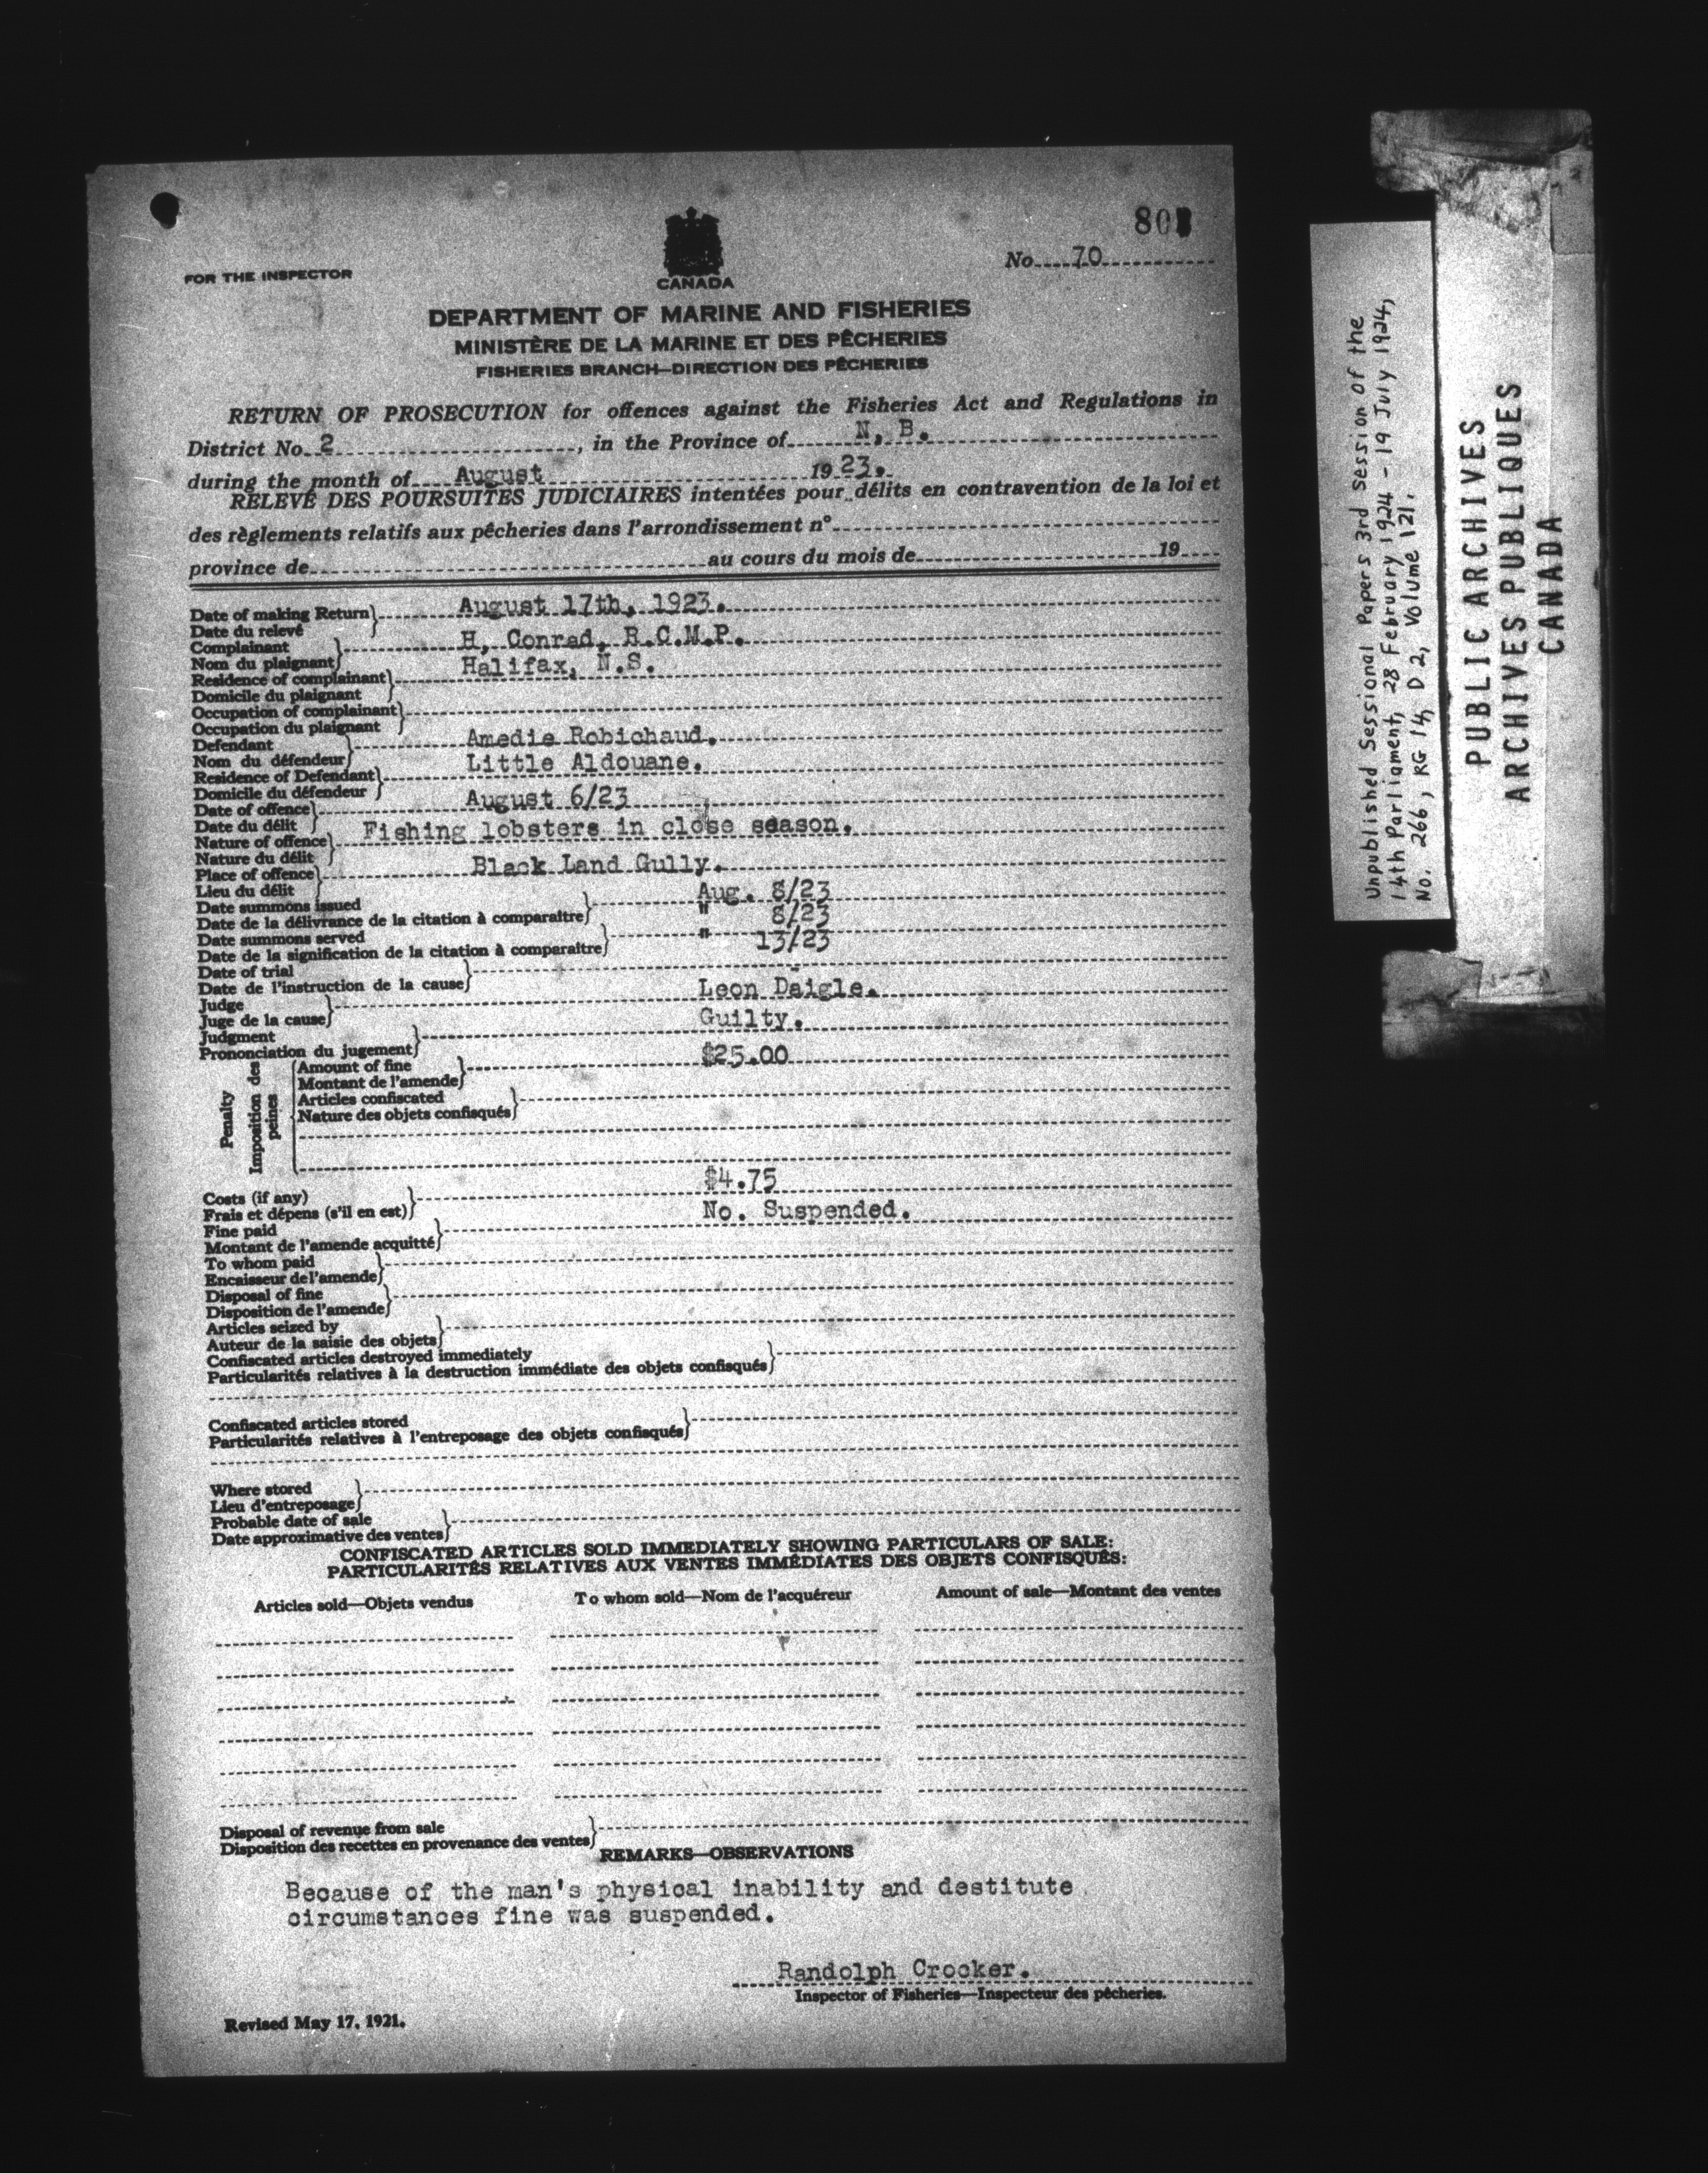 No. 70
FOR THE INSPECTOR
CANADA
DEPARTMENT OF MARINE AND FISHERIES
MINISTÈRE DE LA MARINE ET DES PÊCHERIES
FISHERIES BRANCH—DIRECTION DES PÊCHERIES
RETURN OF PROSECUTION for offences against the Fisheries Act and Regulations in
District No. 2, in the Province of N. B.
during the month of August 1923.
RELEVÉ DES POURSUITES JUDICIAIRES intentées pour délits en contravention de la loi et
des règlements relatifs aux pêcheries dans l'arrondissement n°
province de au cours du mois de 19
Date of making Return August 17th, 1923.
Date du relevé
Complainant H, Conrad, R.C.M.P.
Nom du plaignant
Residence of complainant Halifax, N.S.
Domicile du plaignant
Occupation of complainant
Occupation du plaignant
Defendant Amedie Robichaud.
Nom du défendeur
Residence of Defendant Little Aldouane.
Domicile du défendeur
Date of offence August 6/23
Date du délit
Nature of offence Fishing lobsters in close season.
Nature du délit
Place of offence Black Land Gully.
Lieu du délit
Date summons issued Aug. 8/23
Date de la délivrance de la citation à comparaître
Date summons served " 8/23
Date de la signification de la citation à comparaître
Date of trial " 13/23
Date de l'instruction de la cause
Judge Leon Daigle.
Juge de la cause
Judgment Guilty.
Prononciation du jugement
Penalty
Imposition des peines
Amount of fine $25.00
Montant de l'amende
Articles confiscated
Nature des objets confisqués
Costs (if any) $4.75
Frais et dépens (s'il en est)
Fine paid No. Suspended.
Montant de l'amende acquitté
To whom paid
Encaisseur de l'amende
Disposal of fine
Disposition de l'amende
Articles seized by
Auteur de la saisie des objets
Confiscated articles destroyed immediately
Particularités relatives à la destruction immédiate des objets confisqués
Confiscated articles stored
Particularités relatives à l'entreposage des objets confisqués
Where stored
Lieu d'entreposage
Probable date of sale
Date approximative des ventes
CONFISCATED ARTICLES SOLD IMMEDIATELY SHOWING PARTICULARS OF SALE:
PARTICULARITÉS RELATIVES AUX VENTES IMMÉDIATES DES OBJETS CONFISQUÉS:
Articles sold—Objets vendus To whom sold—Nom de l'acquéreur Amount of sale—Montant des ventes
Disposal of revenue from sale
Disposition des recettes en provenance des ventes
REMARKS—OBSERVATIONS
Because of the man's physical inability and destitute
circumstances fine was suspended.
Randolph Crocker.
Inspector of Fisheries—Inspecteur des pêcheries.
Revised May 17, 1921.
Unpublished Sessional Papers 3rd Session of the
14th Parliament, 28 February 1924 - 19 July 1924,
No. 266, RG 14, D 2, Volume 121.
PUBLIC ARCHIVES
ARCHIVES PUBLIQUES
CANADA